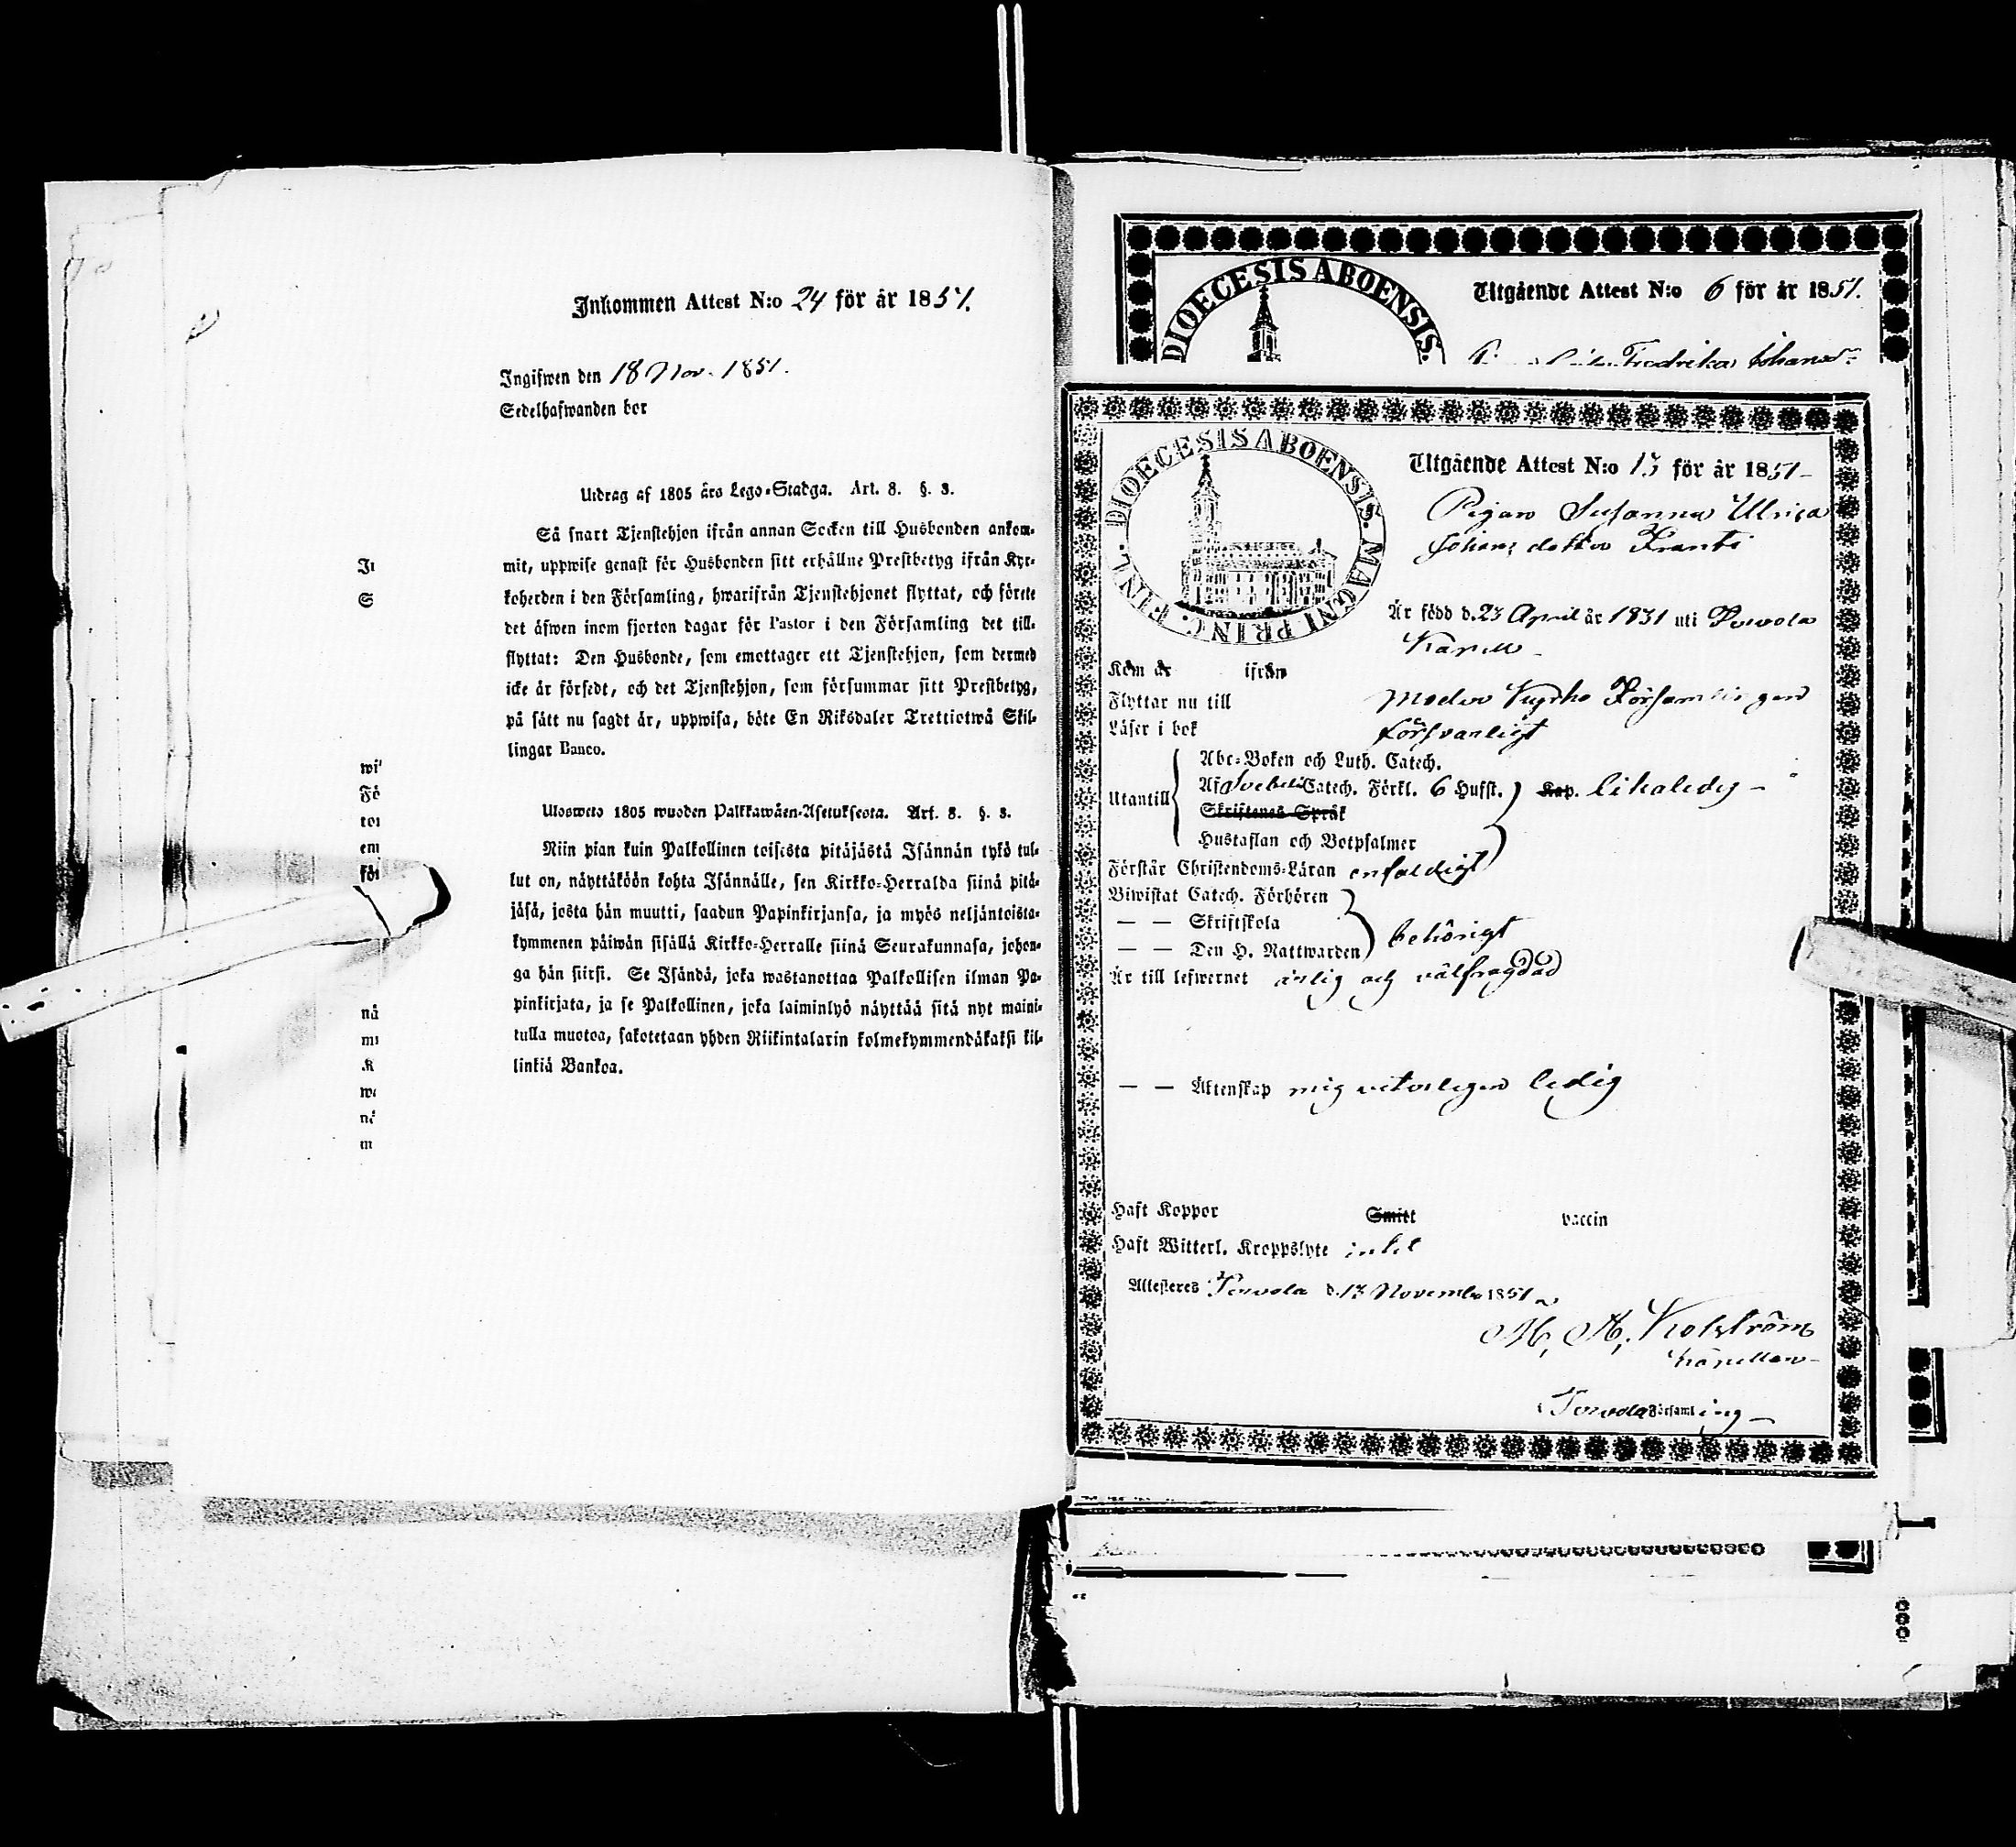 Inkommen Attest N:o 24 för år 1851.
Ingifwen den 18 Nov. 1851.
Sedelhafwanden bor
Utdrag af 1805 års Lego-Stadga. Art. 8. §. 3.
Så snart Tjenstehjon ifrån annan Socken till Husbonden ankom-
mit, uppwise genast för Husbonden sitt erhållne Prestbetyg ifrån Kyr-
koherden i den Församling, hwarifrån Tjenstehjonet flyttat, och förete
det äfwen inom fjorton dagar för Pastor i den Församling det till-
flyttat: Den Husbonde, som emottager ett Tjenstehjon, som dermed
icke är försedt, och det Tjenstehjon, som försummar sitt Prestbetyg,
på sätt nu sagdt är, uppwisa, böte En Riksdaler Trettiotwå Skil-
lingar Banco.
Ulosweto 1805 wuoden Palkkawäen-Asetuksesta. Art. 8. §. 3.
Niin pian kuin Palkollinen toisesta pitäjästä Isännän tykö tul-
lut on, näyttäköön kohta Isännälle, sen Kirkko-Herralda siinä pitä-
jäsä, josta hän muutti, saadun Papinkirjansa, ja myös neljäntoista-
kymmenen päiwän sisällä Kirkko-Herralle siinä Seurakunnasa, johon-
ga hän siirsi. Se Isändä, joka wastanottaa Palkollisen ilman Pa-
pinkirjata, ja se Palkollinen, joka laiminlyö näyttää sitä nyt maini-
tulla muotoa, sakotetaan yhden Riikintalarin kolmekymmendäkaksi kil-
linkiä Bankoa.
wi
Fö
em
för
nå
K
DIOECESIS ABOENSIS.
Utgående Attest N:o 6 för år 1851.
Fredrika Johansd:r
DIOECESIS ABOENSIS. MAGNI PRINC. FINL.
Utgående Attest N:o 13 för år 1851
Pigan Susanna Ulrica
Johansdotter Frants
Är född d. 23 April år 1831 uti Towola
Kapell
Kom år ifrån
Flyttar nu till Moder Kyrko Församlingen
Läser i bok försvarligt
Utantill
Abc-Boken och Luth. Catech.
Af Svebelii Catech. Förkl. 6 Hufst. Kap. likaledes
Skriftenes Språk
Hustaflan och Botpsalmer
Förstår Christendoms-Läran enfaldigt
Biwistat Catech. Förhören
— — Skriftskola
— — Den H. Nattwarden behörigt
Är till lefwernet ärlig och välfrägdad
— — Äktenskap mig veterligen ledig
Haft Koppor Smitt vaccin
Haft Witterl. Kroppslyte intet
Attesteres Towola d. 13 November 1851
Kapellan
Towola Församling